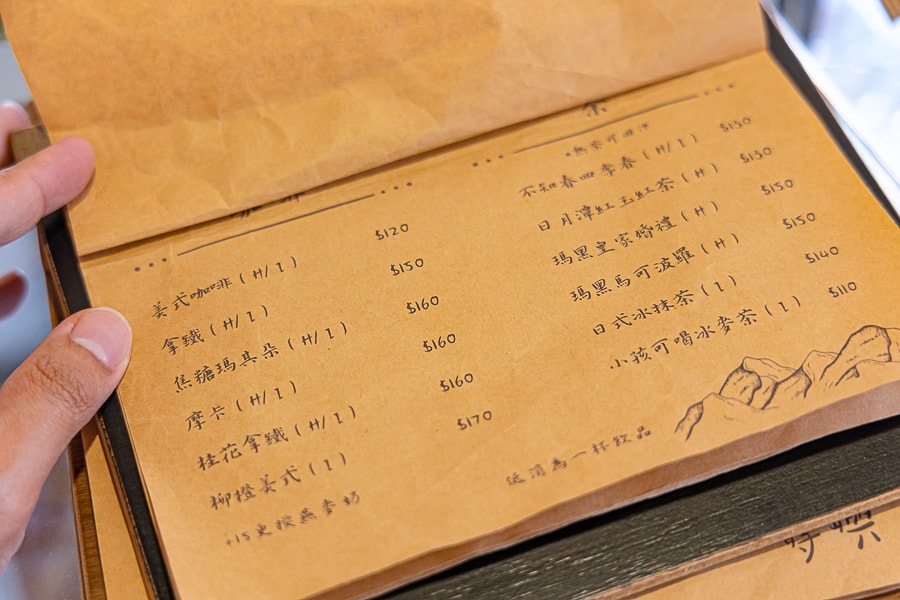 美式咖啡 (H/I) $120
拿鐵 (H/I) $150
焦糖瑪其朵 (H/I) $160
摩卡 (H/I) $160
桂花拿鐵 (H/I) $160
柳橙美式 (I) $170
+15更換燕麥奶
茶
不知春四季春 (H/I) $150
日月潭紅玉紅茶 (H) $150
瑪黑皇家婚禮 (H) $150
瑪黑馬可波羅 (H) $150
日式冰抹茶 (I) $140
小孩可喝冰麥茶 (I) $110
低消為一杯飲品